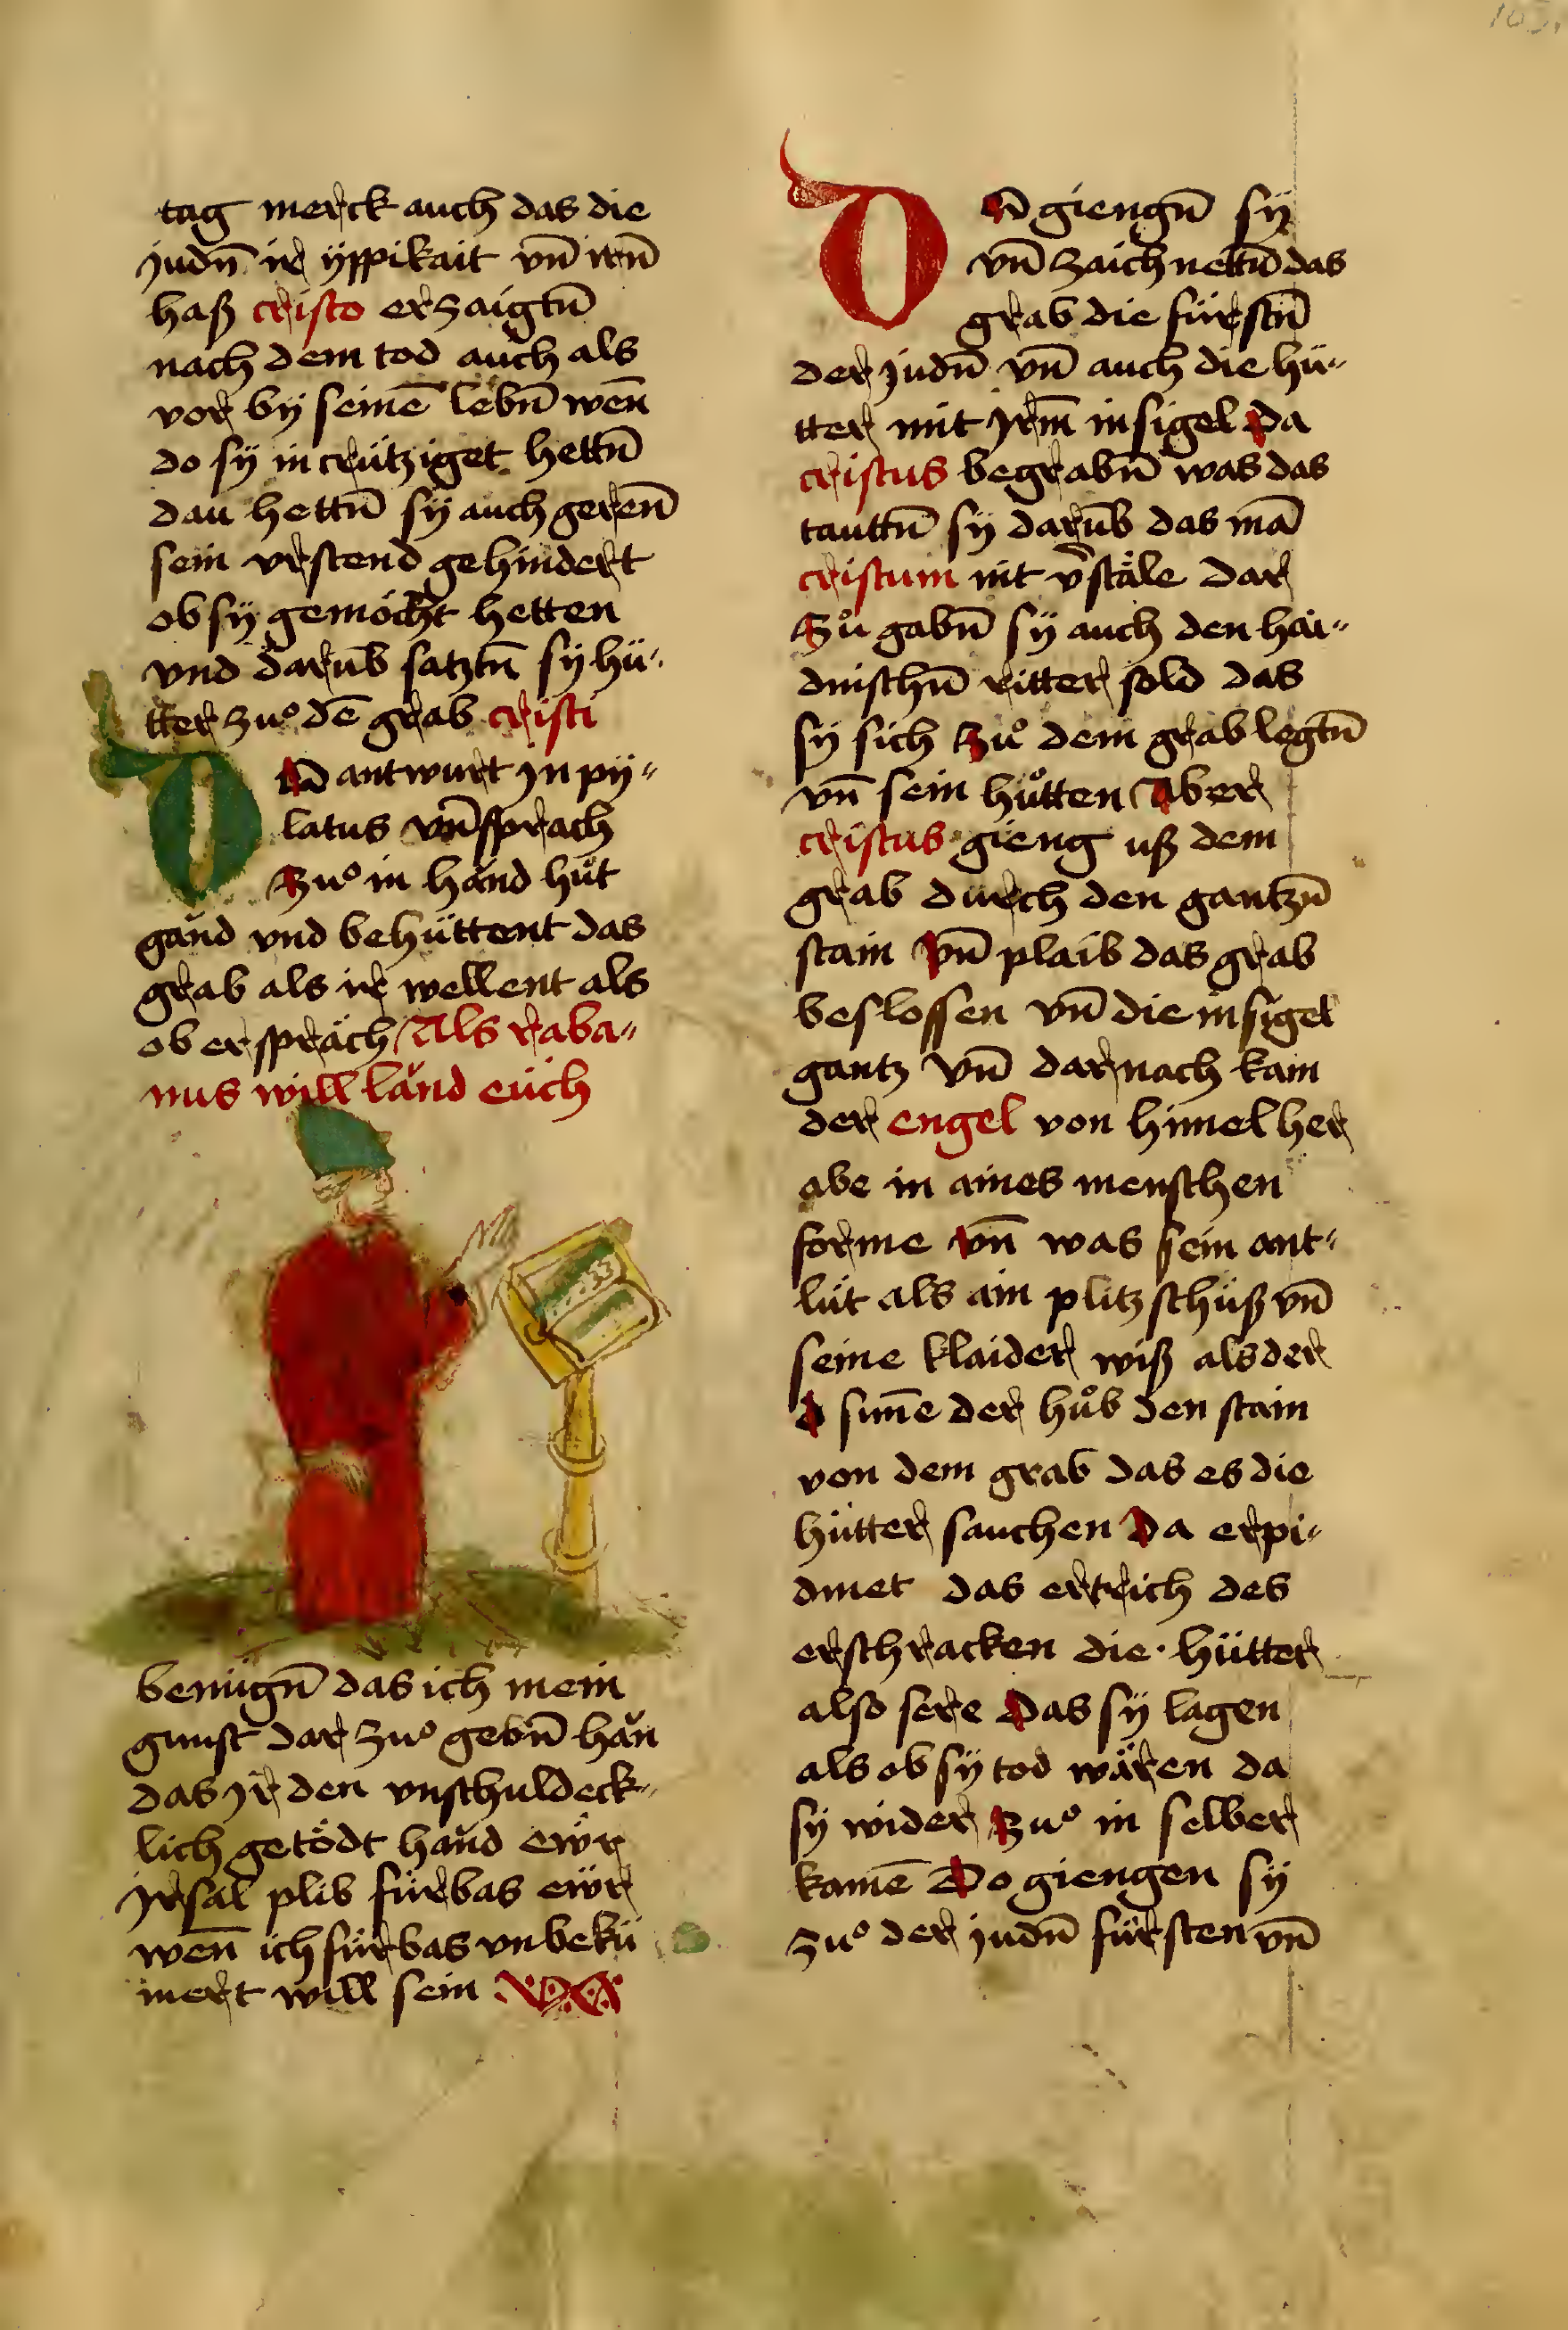 tag merck auch das die
judn̄ ir yppikait vn̄ irn̄
haß cristo erzaigtn̄
nach dem tod auch als
vor by seinē lebn̄ wen̄
do sÿ in crütziget hettn̄
dau hettn̄ sÿ auch geren̄
sein vrstend gehindert
ob sÿ gemöcht hetten
vnd darūb satztn̄ sÿ hü„
tter zuͦ dē grab cristi
DA antwurt jn pÿ„
latus vn̄ sprach
Zuͦ in hand hüt
gand vnd behüttent das
grab als ir wellent als
ob er spräch Als raba„
nus will länd eüch
benügn̄ das ich mein
gunst dar zuͦ gebn̄ han
das jr den vnschuldeck„
lich getödt hand ewr
jrsal plib fürbas ewr
wen̄ ich fürbas vnbekü
mert will sein
DA giengn̄ sÿ
vn̄ zaichnettn̄ das
grab die fürstn̄
der judn̄ vn̄ auch die hü„
tter mit jrm̄ insigel Da
cristus begrabn̄ was das
tauttn̄ sÿ darūb das mā
cristum nit v̄stäle dar
Zuͦ gabn̄ sÿ auch den hai„
dnischn̄ ritter sold das
sÿ sich Zuͦ dem grab legtn̄
vn̄ sein huͦtten Aber
cristus gieng uß dem
grab durch den gantzn̄
stain Vn̄ plaib das grab
beslossen vn̄ die insigel
gantz Vn̄ darnach kam
der engel von himel her
abe in aines menschen
forme vn̄ was sein ant„
lüt als ain plitzschüß vn̄
seine klaider wiß als der
sun̄e der huͦb den stain
von dem grab das es die
hütter sauchen Da erpi„
dmet das ertrich des
erschracken die hütter
also sere Das sÿ lagen
als ob sÿ tod wären da
sÿ wider Zuͦ in selber
kamē Do giengen sÿ
zuͦ der judn̄ fürsten vn̄